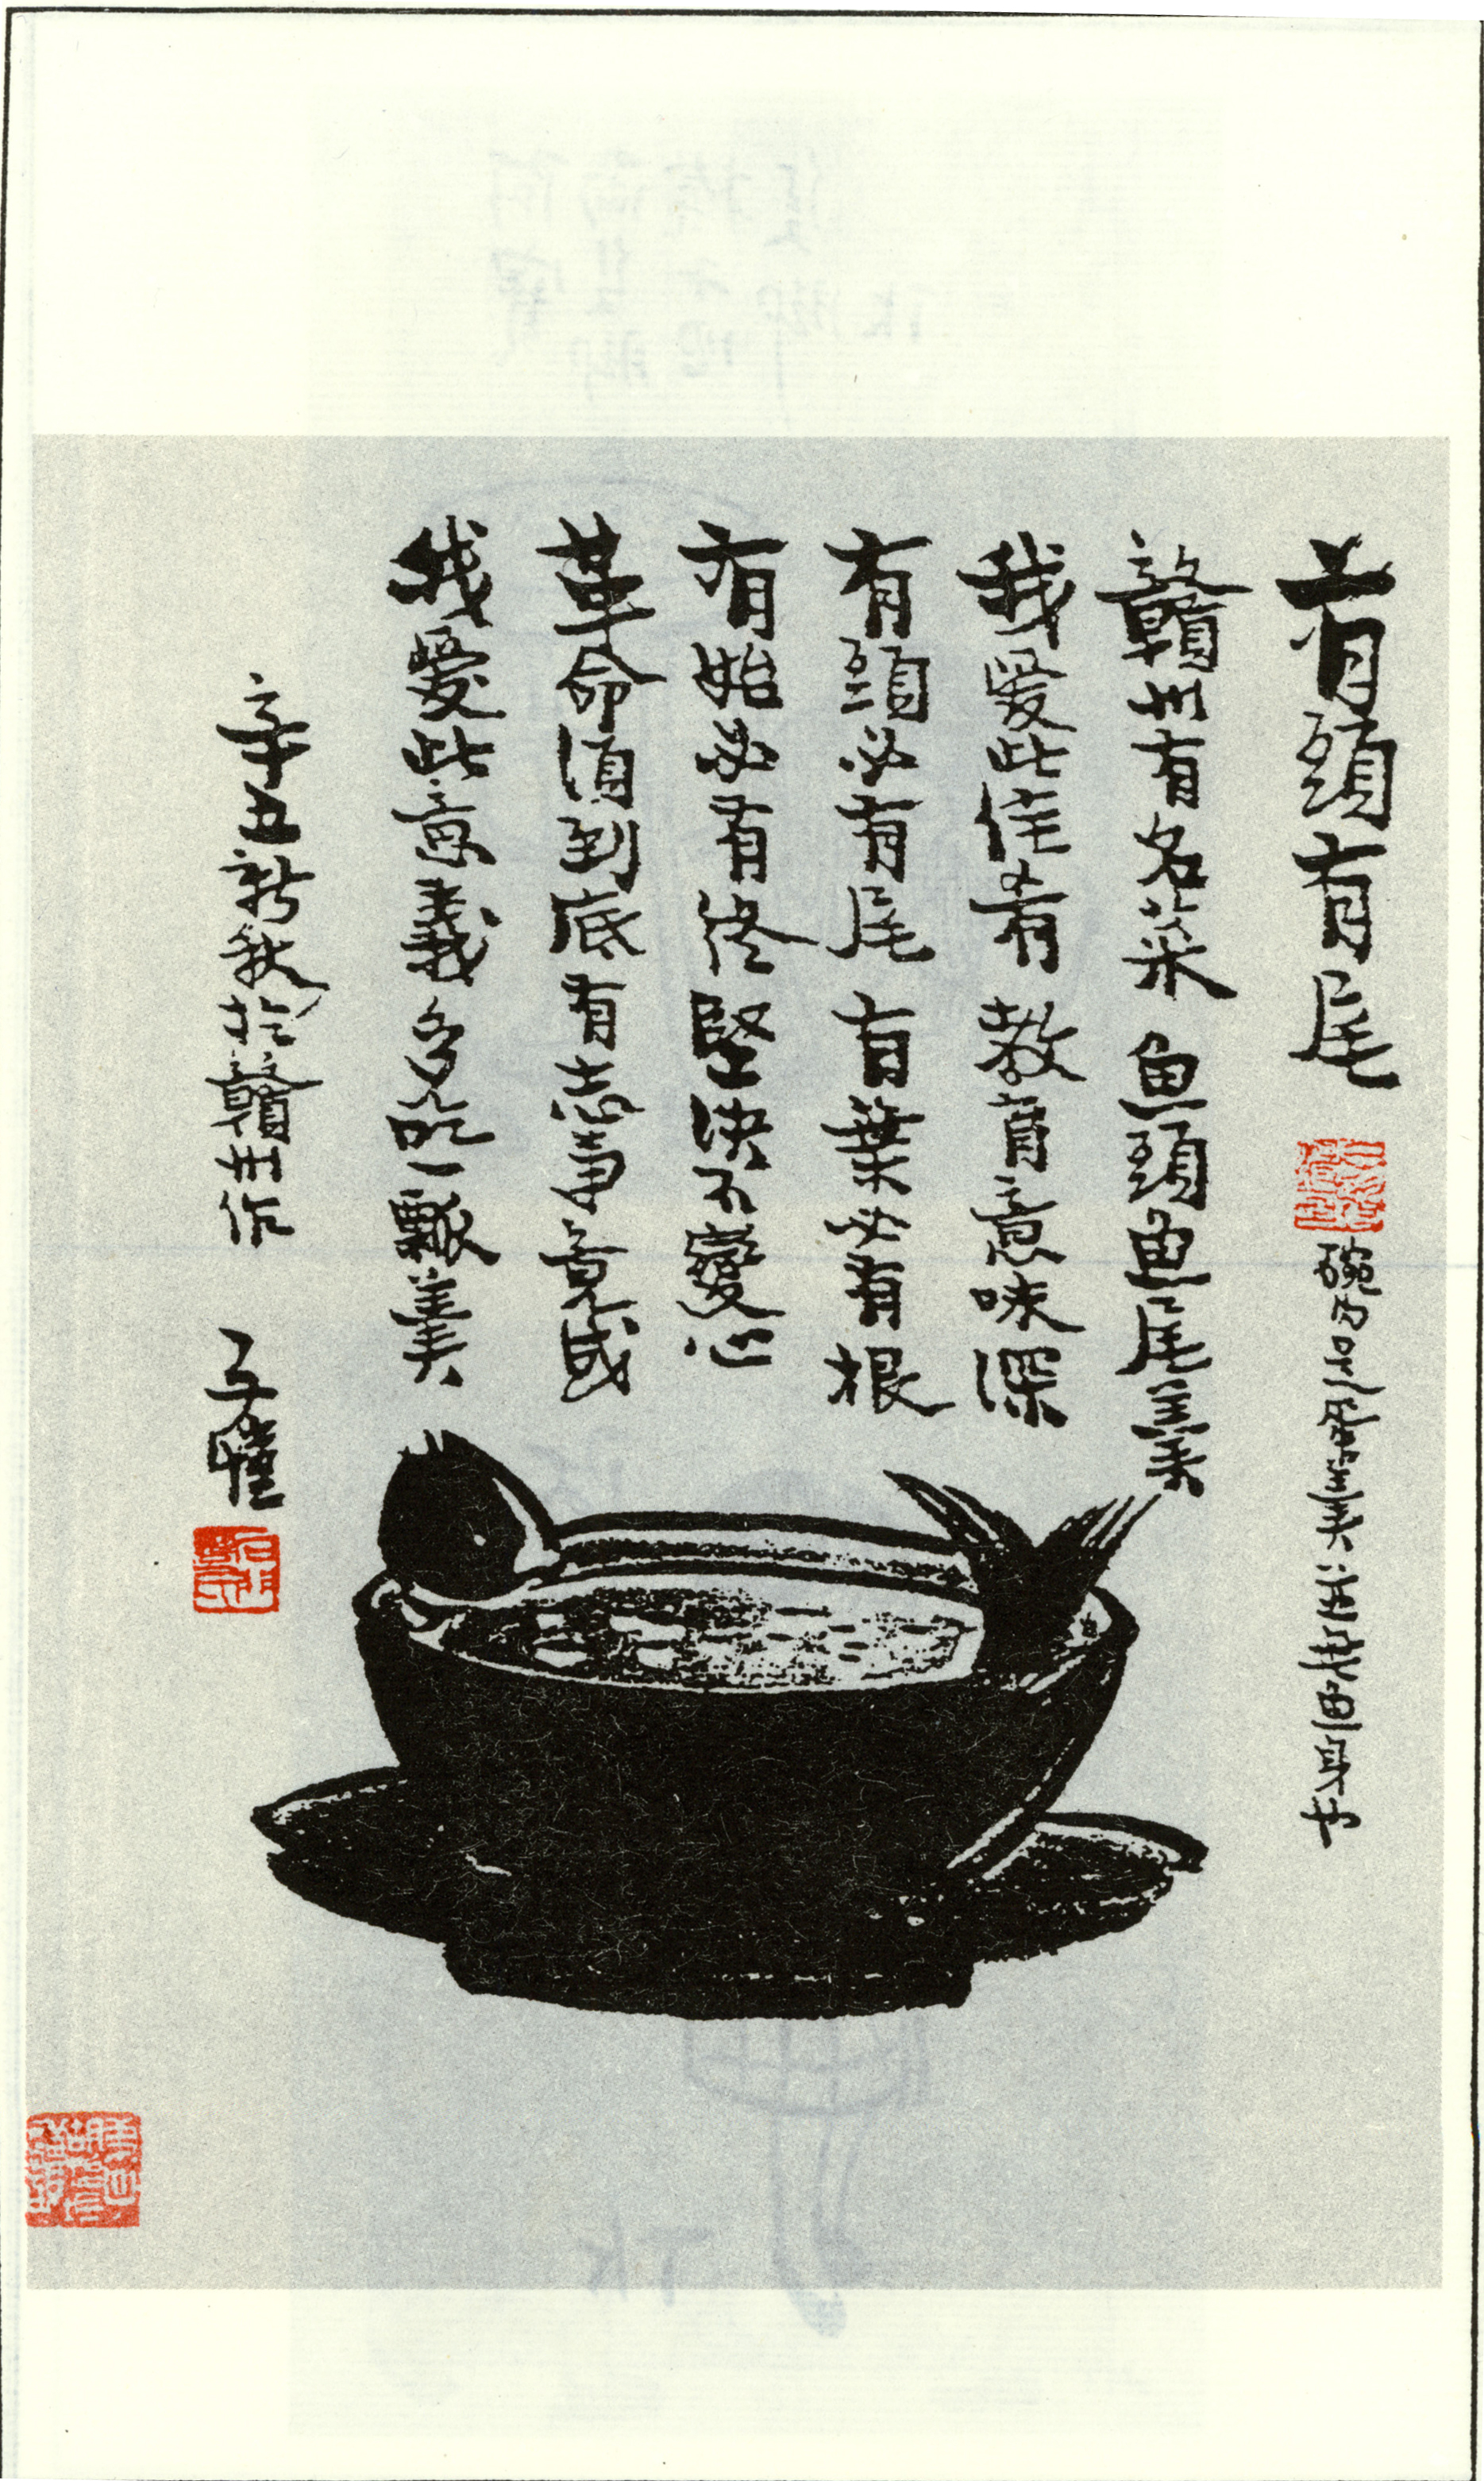 有頭有尾
贛州有名菜 魚頭魚尾羹
我愛此佳肴 教育意味深
有頭必有尾 有葉必有根
有始必有終 堅決不變心
革命須到底 有志事竟成
我愛此意義 多吃一甌羹
辛丑新秋於贛州作 子愷